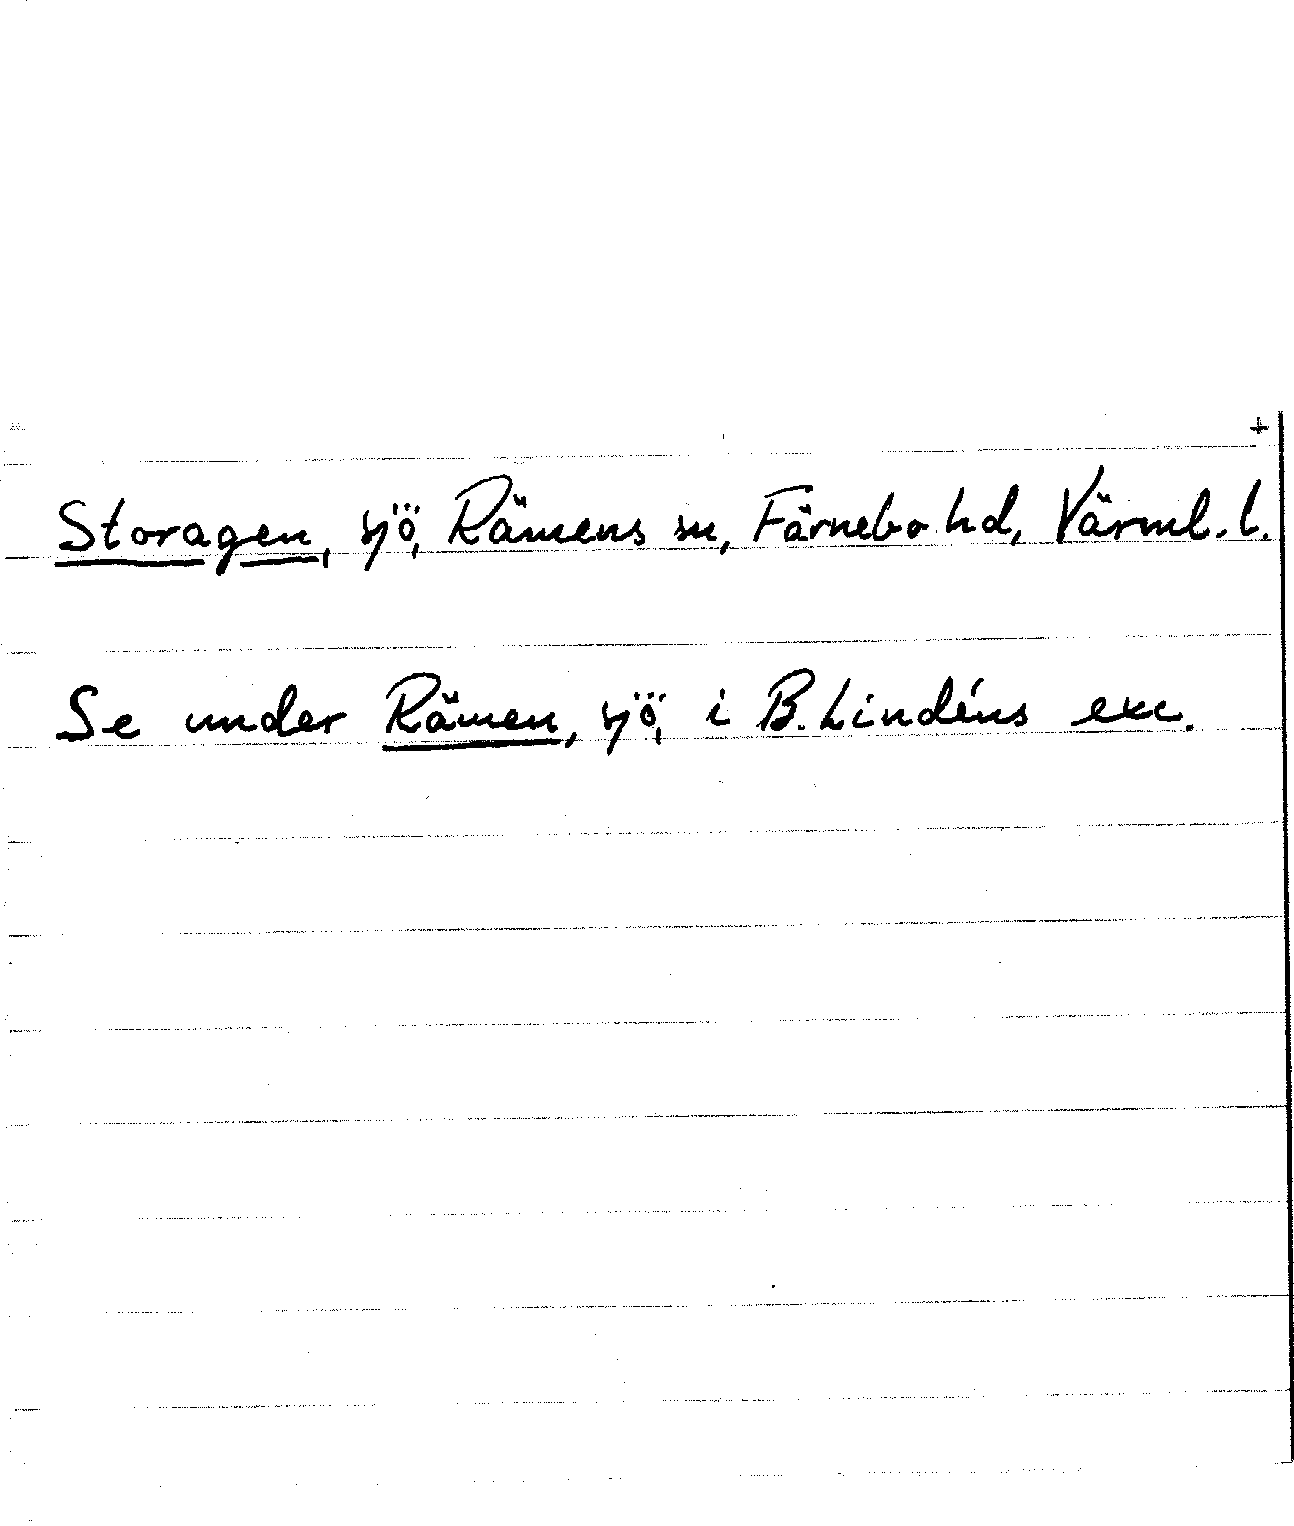 +
Storagen, sjö, Rämens sn, Färnebo hd, Värml. l.
Se under Rämen, sjö, i B. Lindéns exc.